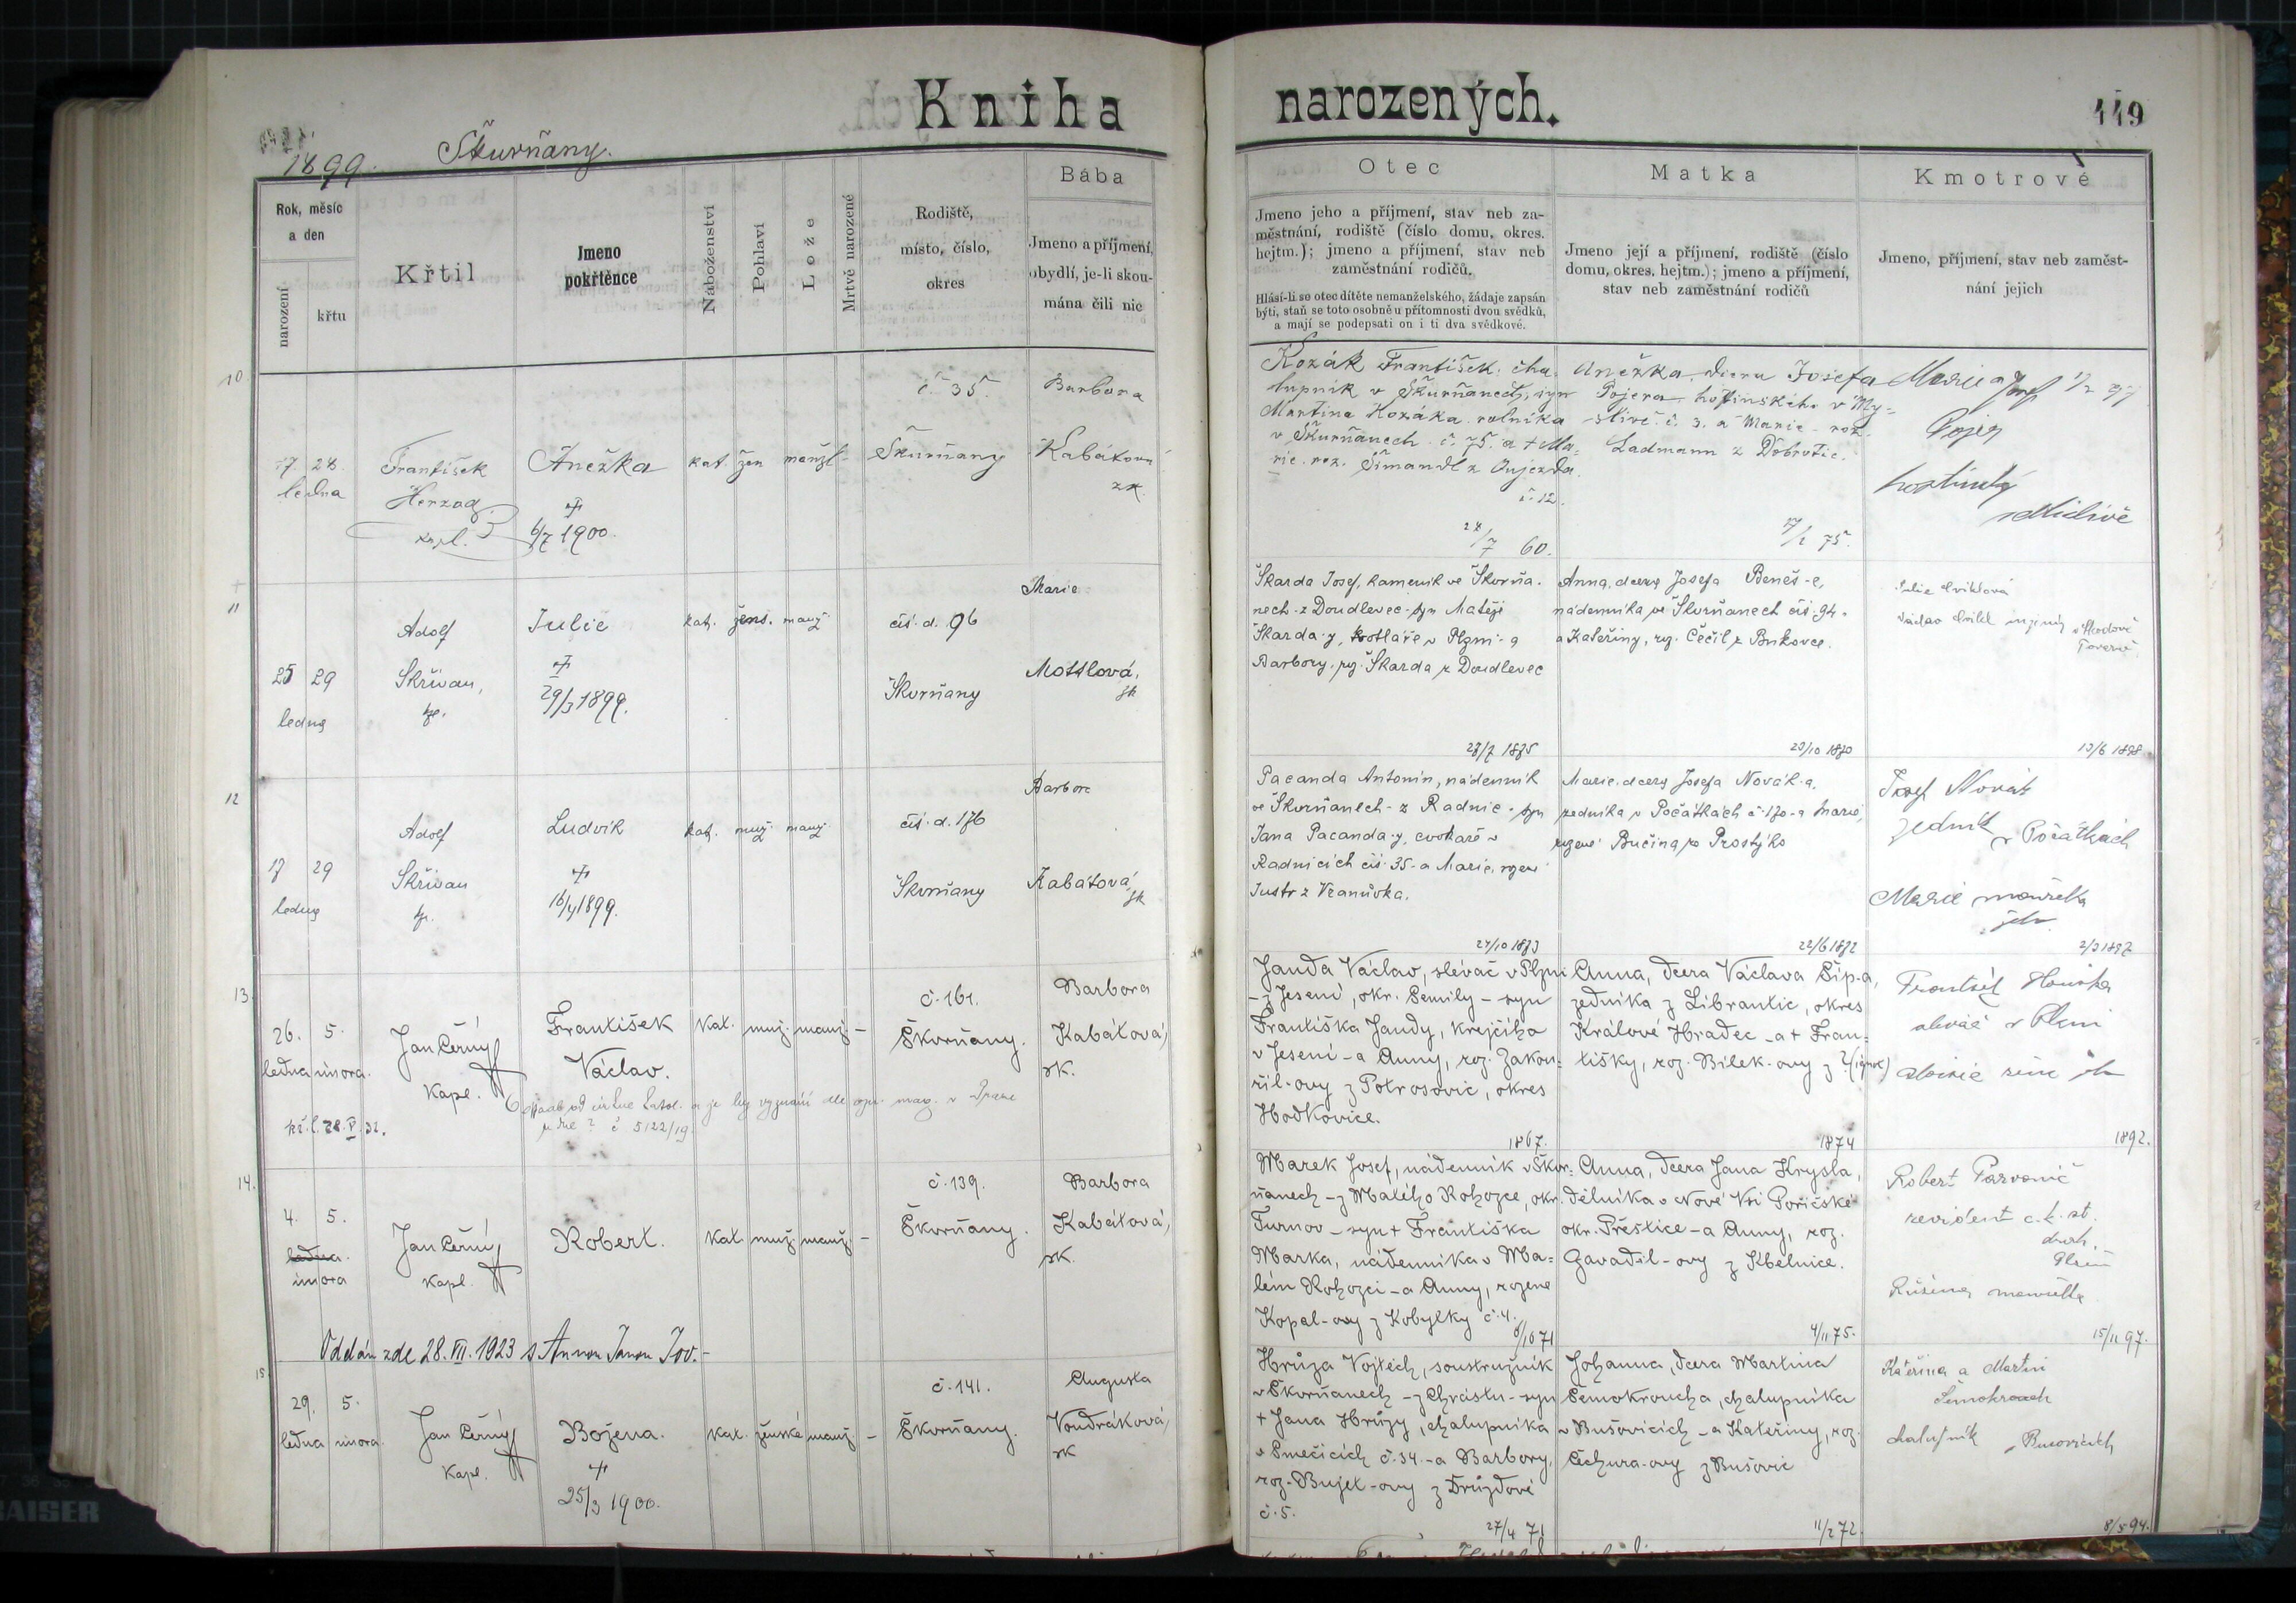 Kniha narozených.
119
1899.
Škurňany.
Rok, měsíc a den
narození
křtu
Křtil
Jmeno pokřtěnce
Náboženství
Pohlaví
Lože
Mrtvě narozené
Rodiště, místo, číslo, okres
Bába
Jmeno a příjmení, obydlí, je-li skoumána čili nic
Otec
Jmeno jeho a příjmení, stav neb za-
městnání, rodiště (číslo domu, okres.
hejtm.); jmeno a příjmení, stav neb
zaměstnání rodičů.
Hlásí-li se otec dítěte nemanželského, žádaje zapsán
býti, staň se toto osobně u přítomnosti dvou svědků,
a mají se podepsati on i ti dva svědkové.
Matka
Jmeno její a příjmení, rodiště (číslo
domu, okres. hejtm.); jmeno a příjmení,
stav neb zaměstnání rodičů
Kmotrové
Jmeno, příjmení, stav neb zaměst-
nání jejich
10
17 28.
ledna
František
Herzog
kapl.
Anežka
6/7 1900.
kat. žen manžl -
č. 35.
Škurňany
Barbora
Kabátová
zk.
Kozák František, cha-
lupník v Škurňanech, syn
Martina Kozáka rolníka
v Škurňanech č. 75. a + Ma-
rie roz. Šimandl z Oujezda
č. 12.
24/7 60.
Anežka, dcera Josefa
Pojera hostinského v My-
slivě č. 3. a Marie roz.
Ladmann z Dobrotic.
17/1 75.
Marie a Josef
Pojer
hostinský
11
25 29
ledna
Adolf
Skřivan,
kp.
Julie
29/3 1899.
kat. žens. manž.
čís. d. 96
Škvrňany
Marie
Mottlová,
zk
Škarda Josef, kameník ve Škvrňa-
nech - z Doudlevec - syn Matěje
Škarda-y, kotláře v Plzni - a
Barbory, roz. Škarda z Doudlevec
27/7 1875
Anna, dcera Josefa Beneš-e,
nádenníka ve Škvrňanech čís. 94 -
a Kateřiny, roz. Čečil z Bukovce.
23/10 1870
13/6 1898
12
17 29
ledna
Adolf
Skřivan
kp.
Ludvík
16/4 1899.
kat. muž. manž.
čís. d. 176
Škvrňany
Barbora
Kabátová,
zk
Pacanda Antonín, nádenník
ve Škvrňanech - z Radnic - syn
Jana Pacanda-y, cvokaře v
Radnicích čís. 35 - a Marie, rozené
Justr z Vranovka.
24/10 1873
Marie, dcera Josefa Novák-a,
zedníka v Počátkách č. 170 - a Marie,
rozené Bučina, ze Prostýho
22/6 1872
Josef Novák
zedník
v Počátkách
Marie manželka
jeho
2/3 1897
13.
26. 5.
ledna února.
Jan Černý
Kapl.
František
Václav.
kat. muž. manž. -
č. 161.
Škvrňany.
Barbora
Kabátová,
zk.
č 5122/19
Janda Václav, slévač v Plzni
- z Jesení, okr. Semily - syn
Františka Jandy, krejčího
v Jesení - a Anny, roz. Zakou-
řil-ovy z Potrosovic, okres
Hodkovice.
1867.
Anna, dcera Václava Šíp-a,
zedníka z Librantic, okres
Králové Hradec - a + Fran-
tišky, roz. Bílek-ovy z ?
1874
František Houška
slévač v Plzni
1892.
14.
4. 5.
ledna.
února
Jan Černý
Kapl.
Robert.
kat. muž. manž. -
č. 139.
Škvrňany.
Barbora
Kabátová,
zk.
Oddán zde 28. VII. 1923 s Annou Janou Jov. -
Marek Josef, nádenník v Škvr-
ňanech - z Malého Rohozce, okr.
Turnov - syn + Františka
Marka, nádenníka v Ma-
lém Rohozci - a Anny, rozené
Kopal-ovy z Kobylky č. 4.
6/10 71
Anna, dcera Jana Krysla,
dělníka v Nové Vsi Poříčské
okr. Přeštice - a Anny, roz.
Zavadil-ovy z Kbelnice.
4/11 75.
Robert Parvonič
revident c. k. st.
drah.
Plzeň
Růžena manželka
15/11 97.
15
29. 5.
ledna února.
Jan Černý
Kapl.
Božena.
25/3 1900.
kat. ženské manž. -
č. 141.
Škvrňany.
Augusta
Voudráková,
zk
Hrůza Vojtěch, soustružník
v Škvrňanech - z Chrástu - syn
+ Jana Hrůzy, chalupníka
v Smečicích č. 34. - a Barbory,
roz. Bujet-ovy z Družďové
č. 5.
27/4 71
Johanna, dcera Martina
Šemokroucha, chalupníka
v Bušovicích - a Kateřiny, roz.
Čichura-ovy z Bušovic
11/2 72.
Kateřina a Martin
Šimokrouch
chalupník v Bušovicích
8/5 94.